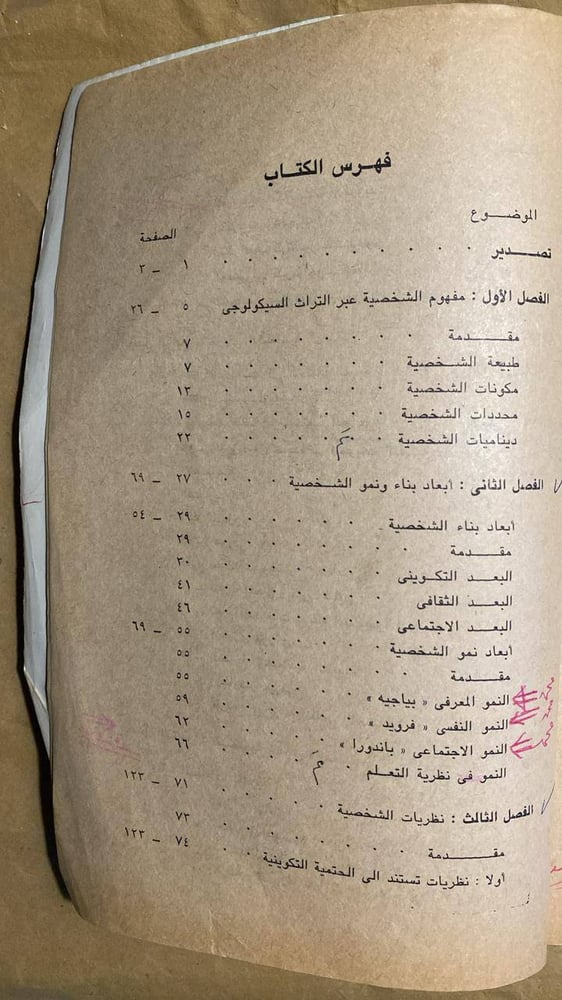 فهرس الكتاب
الموضوع الصفحة
تصدير . . . . . . . . . . ١ – ٣
الفصل الأول : مفهوم الشخصية عبر التراث السيكولوجى ٥ – ٢٦
مقدمة . . . . . . . . ٧
طبيعة الشخصية . . . . . . . ٧
مكونات الشخصية . . . . . . . ١٣
محددات الشخصية . . . . . . . ١٥
ديناميات الشخصية . . . . . . . ٢٢
الفصل الثانى : أبعاد بناء ونمو الشخصية . . . . ٢٧ – ٦٩
أبعاد بناء الشخصية . . . . . . ٢٩ – ٥٤
مقدمة . . . . . . . ٢٩
البعد التكوينى . . . . . . . ٣٠
البعد الثقافى . . . . . . . ٤١
البعد الاجتماعى . . . . . . . ٤٦
أبعاد نمو الشخصية . . . . . . ٥٥ – ٦٩
مقدمة . . . . . . . ٥٥
النمو المعرفى « بياجيه » . . . . . ٥٥
النمو النفسى « فرويد » . . . . . ٥٩
النمو الاجتماعى « باندورا » . . . . ٦٢
النمو فى نظرية التعلم . . . . . ٦٦
الفصل الثالث : نظريات الشخصية . . . . ٧١ – ١٢٣
مقدمة . . . . . . . ٧٣
أولا : نظريات تستند الى الحتمية التكوينية . . ٧٤ – ١٢٣